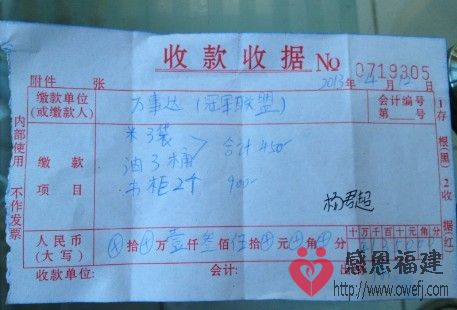 收款收据 No 0719305
附件 张 2013年4月12日
缴款单位
(或缴款人)
万事达(冠军联盟)
会计编号
第 号
缴款
项目
米3袋
油3桶
合计450
书柜2个 900
杨君超
人民币
(大写)
⊕拾⊕万壹仟叁佰伍拾⊕元⊕角⊕分
十万千百十元角分
收款单位: 会计:
内部使用 不作发票
1存根(黑) 2收据(红)
感恩福建
http://www.owefj.com